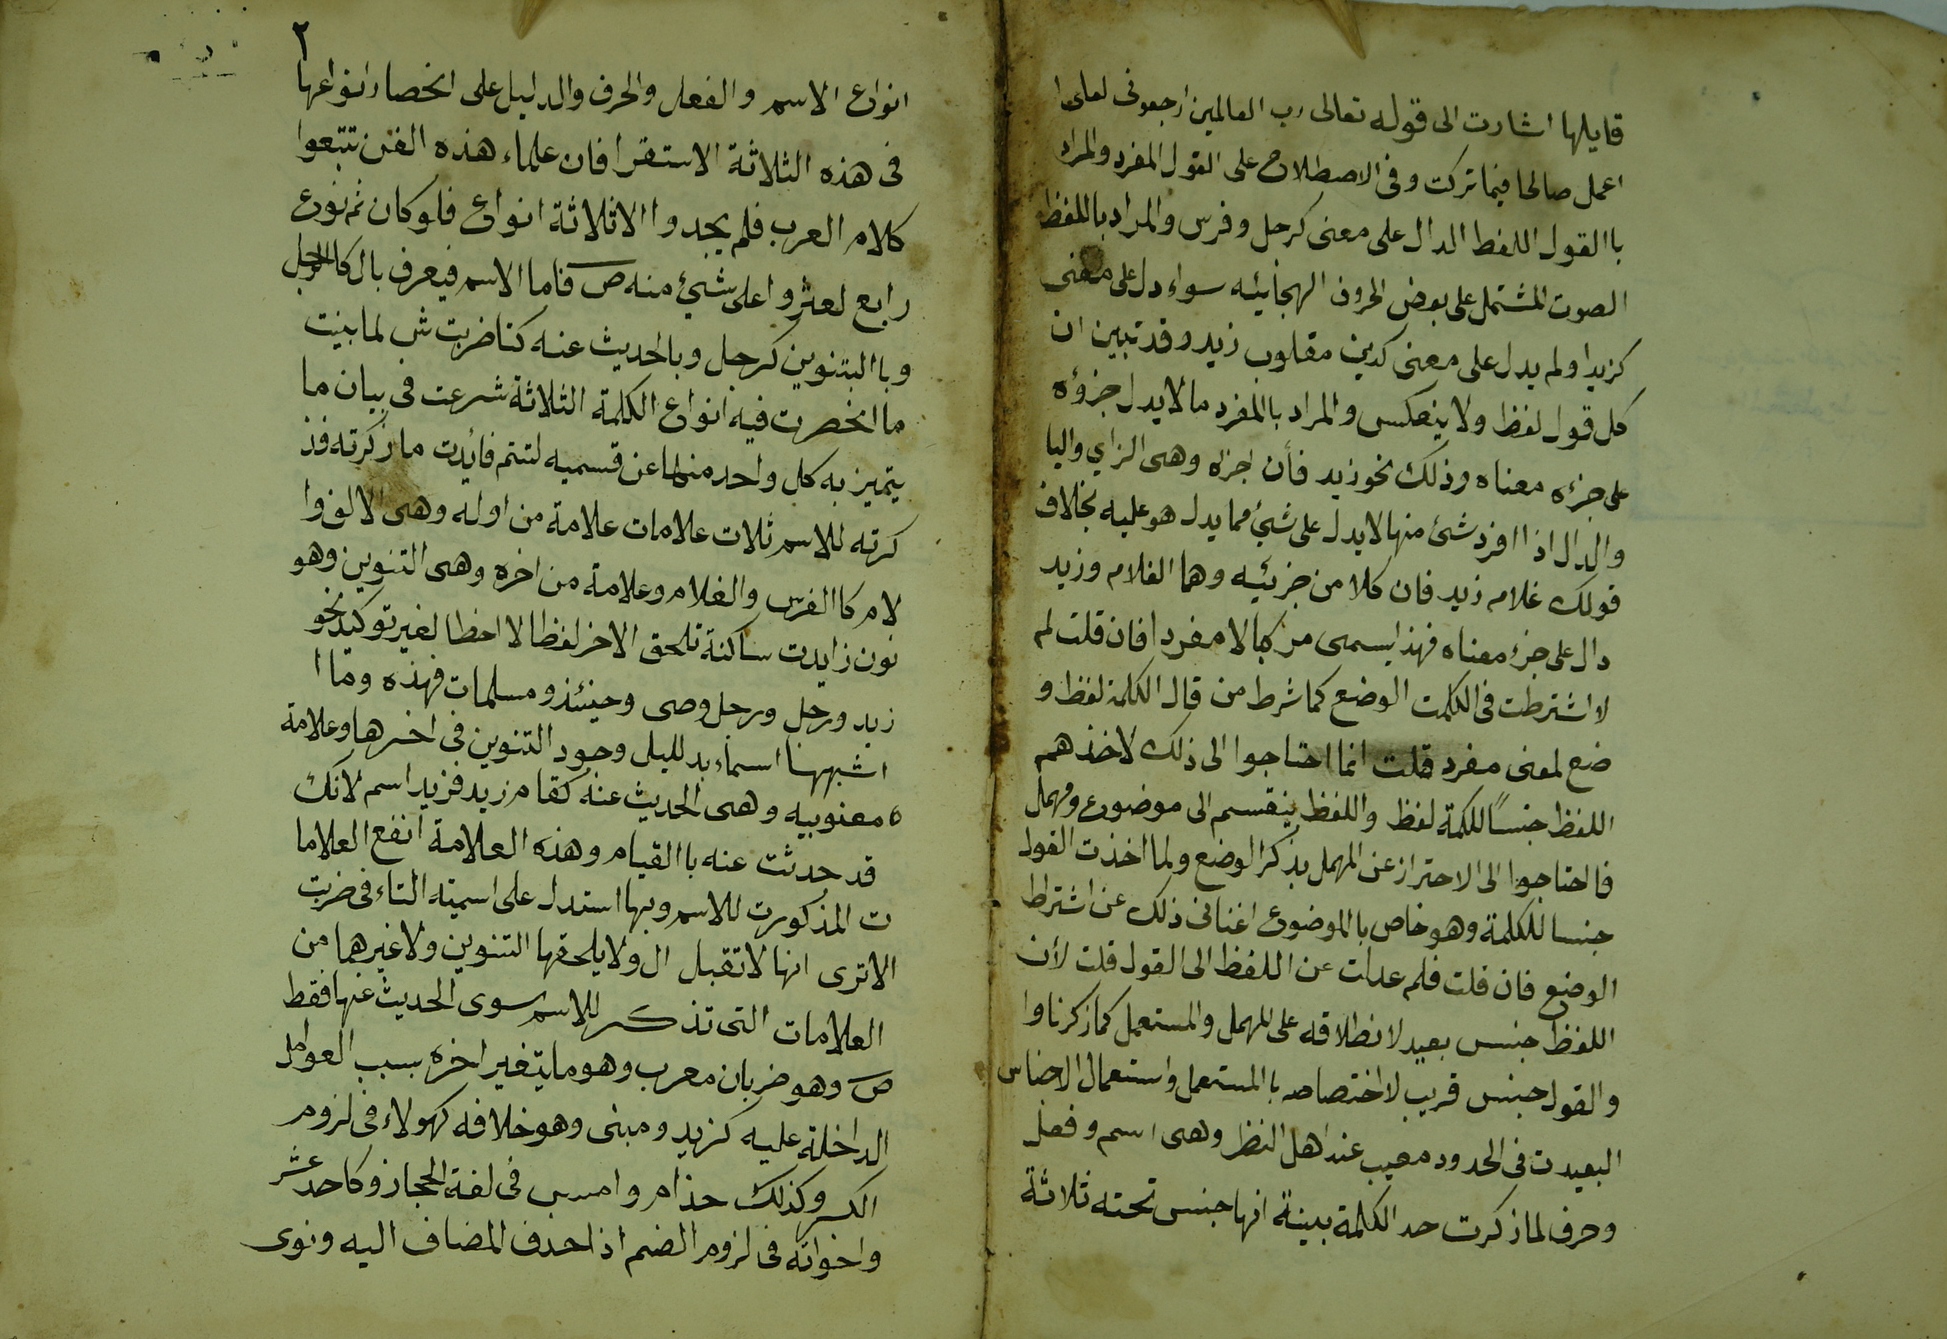 قايلها اشارت الى قوله تعالى رب العالمين ارجعونى لعلى ا
اعمل صالحا فيما تركت وفى الاصطلاح على القول المفرد والمراد
باالقول اللفط الدال على معنى كرحل وفرس والمراد باللفظ
الصوت المشتمل على بعض الحروف الهجائيه سواء دل على معنى
كزيد او لم يدل على معنى كديز مقلوب زيد وقد تبين ان
كل قول لفظ ولا ينعكس والمراد بالمفرد ما لا يدل جزؤه
على جزء معناه وذلك نحو زيد فأن اجزاه وهى الزاي واليا
والدال اذا افرد شئ منها لا يدل على شئ مما يدل هو عليه بخلاف
قولك غلام زيد فان كلا من جزئيه وهما الغلام وزيد
دال على جزء معناه فهذا يسمى مركبا لا مفردا فان قلت لم
لا اشترطت فى الكلمت الوضع كما شرط من قال الكلمة لفظ و
ضع لمعنى مفرد قلت انما احتاجوا الى ذلك لاخذهم
اللفظ جنسًا للكمة لفظ واللفظ ينقسم الى موضوع ومهمل
فااحتاجوا الى الاحتراز عن المهمل بذكر الوضع ولما اخذت القول
جنسا للكلمة وهو خاص بالموضوع اغنانى ذلك عن اشترط
الوضع فان قلت فلم عدلت عن اللفظ الى القول قلت لأن
اللفظ جنس بعيد لانطلاقه على المهمل والمستعمل كما زكرنا وا
والقول جنس قريب لاختصاصه باالمستعمل واستعمال الاجناس
البعيدت فى الحدود معيب عند اهل النظر وهى اسم وفعل
وحرف لما زكرت حد الكلمة بينة انها جنس تحته ثلاثة
٢
انواع الاسم والفعل والحرف والدليل على انحصار انواعها
فى هذه الثلاثة الاستقرا فان علماء هذه الفن تتبعوا
كلام العرب فلم يجدوا الا ثلاثة انواع فلو كان ثم نوع
رابع لعثروا على شئ منه ص فاما الاسم فيعرف بال كاالرجل
وباالتنوين كرجل وبالحديث عنه كتا ضربت ش لما بينت
ما انحصرت فيه انواع الكلمة الثلاثة شرعت فى بيان ما
يتميز به كل واحد منها عن قسميه لتتم فائدت ما زكرته فذ
كرته للاسم ثلاث علامات علامة من اوله وهى الالف وا
لام كاالفرس والغلام وعلامة من اخره وهى التنوين وهو
نون زايدت ساكنة تلحق الاخر لفظا لا خطا لغير توكيد نحو
زيد ورجل ورجل وصى وحينئذ ومسلمات فهذه وما ا
اشبهها اسماء بدلليل وجود التنوين فى اخرها وعلامة
ه معنوييه وهى الحديث عنه كقام زيد فزيد اسم لانك
قد حدثت عنه باالقيام وهذه العلامة انفع العلاما
ت المذكورت للاسم وبها استدل على اسميته التاء فى ضربت
الا ترى انها لا تقبل ال ولا يلحقها التنوين ولا غيرها من
العلامات التى تذكر للاسم سوى الحديث عنها فقط
ص وهو ضربان معرب وهو ما يتغير اخره بسبب العوامل
الداخلة عليه كزيد ومبنى وهو خلافه كهولاء فى لزوم
الكسر وكذلك حذام وامس فى لغة الحجاز وكاحد عشر
واخواته فى لزوم الضم اذا حدف المضاف اليه ونوى